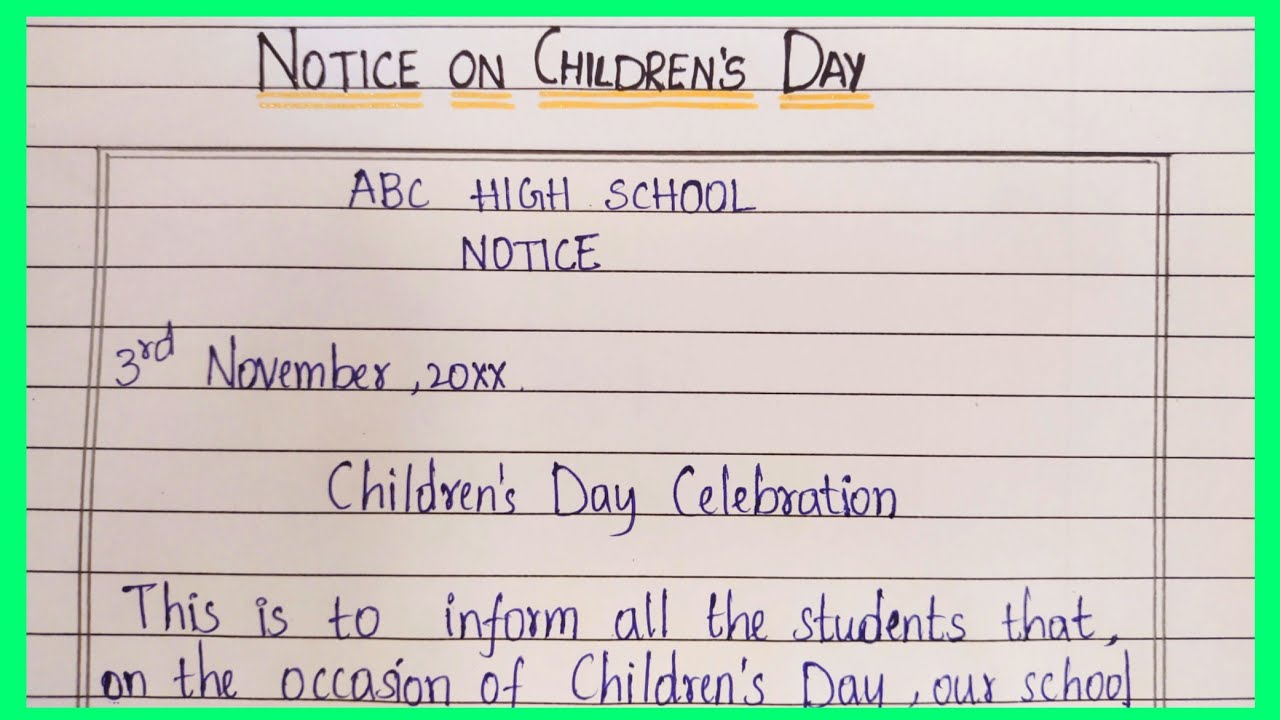 NOTICE ON CHILDREN'S DAY
ABC HIGH SCHOOL
NOTICE
3rd November, 20xx.
Children's Day Celebration
This is to inform all the students that,
on the occasion of Children's Day, our school